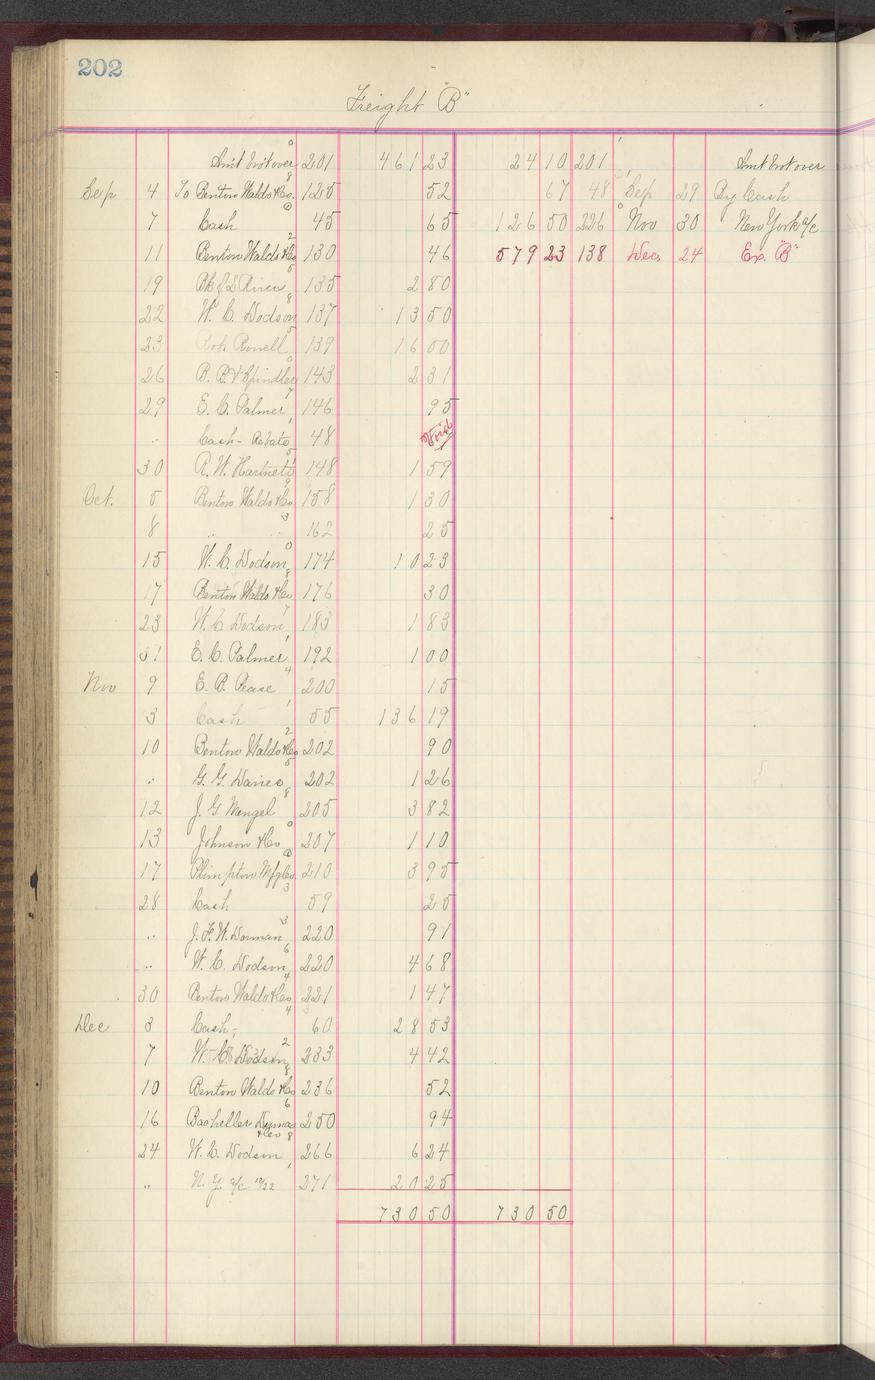 202
Freight "B"
Am't bro't over 201 461 23 24 10 201 Amt bro't over
Sep 4 To Benton Waldo & Co. 125 52 67 48 Sep 29 By Cash
7 Cash 45 65 126 50 226 Nov 30 New York a/c
11 Benton Waldo & Co 130 46 579 23 138 Dec 24 Ex. "B"
19 135 2 80
22 W. C. Dodson 137 13 50
23 Rob. Rowell 139 16 00
26 B. B. & Spindler 143 2 31
29 E. C. Palmer 146 95
" Cash - Rebate 48 Void
30 R. W. Hartnett 148 1 59
Oct. 5 Benton Waldo & Co 158 1 30
8 " " 162 25
15 W. C. Dodson 174 10 23
17 Benton Waldo & Co 176 30
23 W. C. Dodson 183 1 83
31 E. C. Palmer 192 1 00
Nov 9 E. P. Pease 200 15
3 Cash 55 136 19
10 Benton Waldo & Co 202 90
" G. G. Davies 202 1 26
12 J. G. Wengel 205 3 82
13 Johnson & Co 207 1 10
17 Plimpton Mfg Co. 210 3 95
28 Cash 59 25
" J. F. W. Dorman 220 91
" W. C. Dodson 220 4 68
30 Benton Waldo & Co 221 1 47
Dec 3 Cash 60 28 53
7 W. C. Dodson 233 4 42
10 Benton Waldo & Co 236 52
16 Bacheller Dumas & Co 250 94
24 W. C. Dodson 266 6 24
" N. Y. a/c 12/22 271 20 25
730 50 730 50